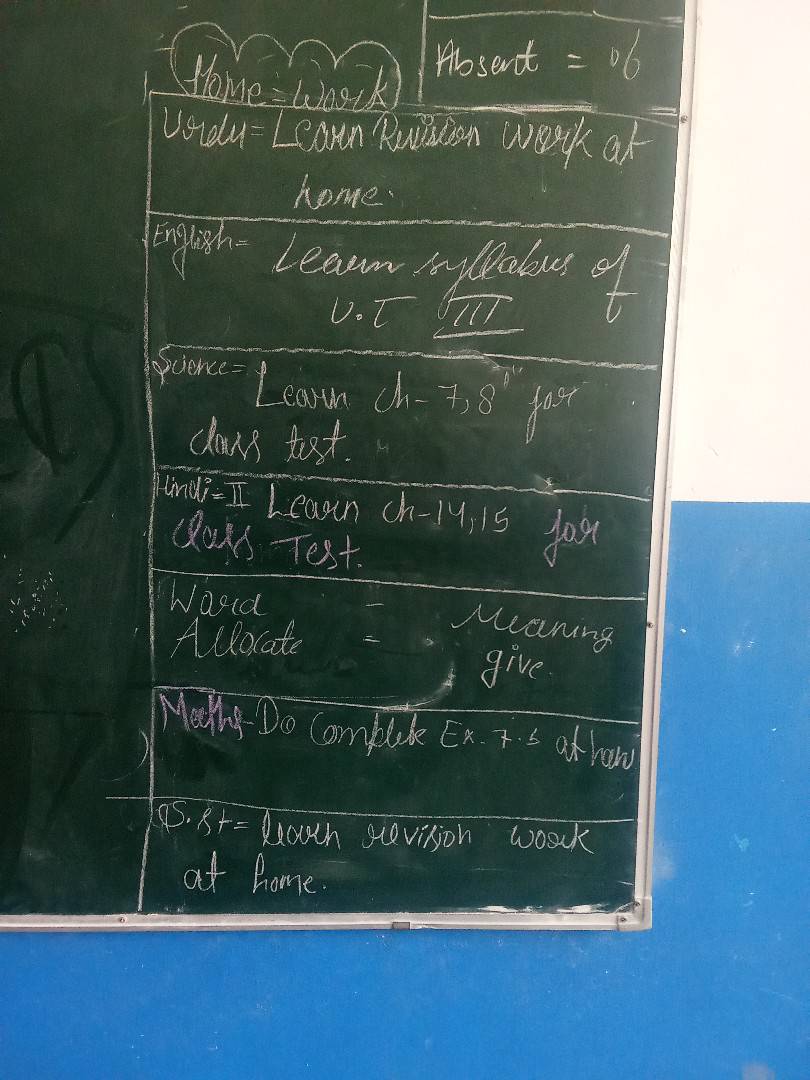 Absent = 06
Home = Work
Urdu = Learn Revision work at
home.
English = Learn syllabus of
U.T III
Science = Learn ch - 7, 8 for
class test.
Hindi = II Learn ch - 14, 15 for
Class Test.
Word - Meaning
Allocate = give.
Maths - Do Complete Ex. 7.5 at
S.St = learn revision work
at home.